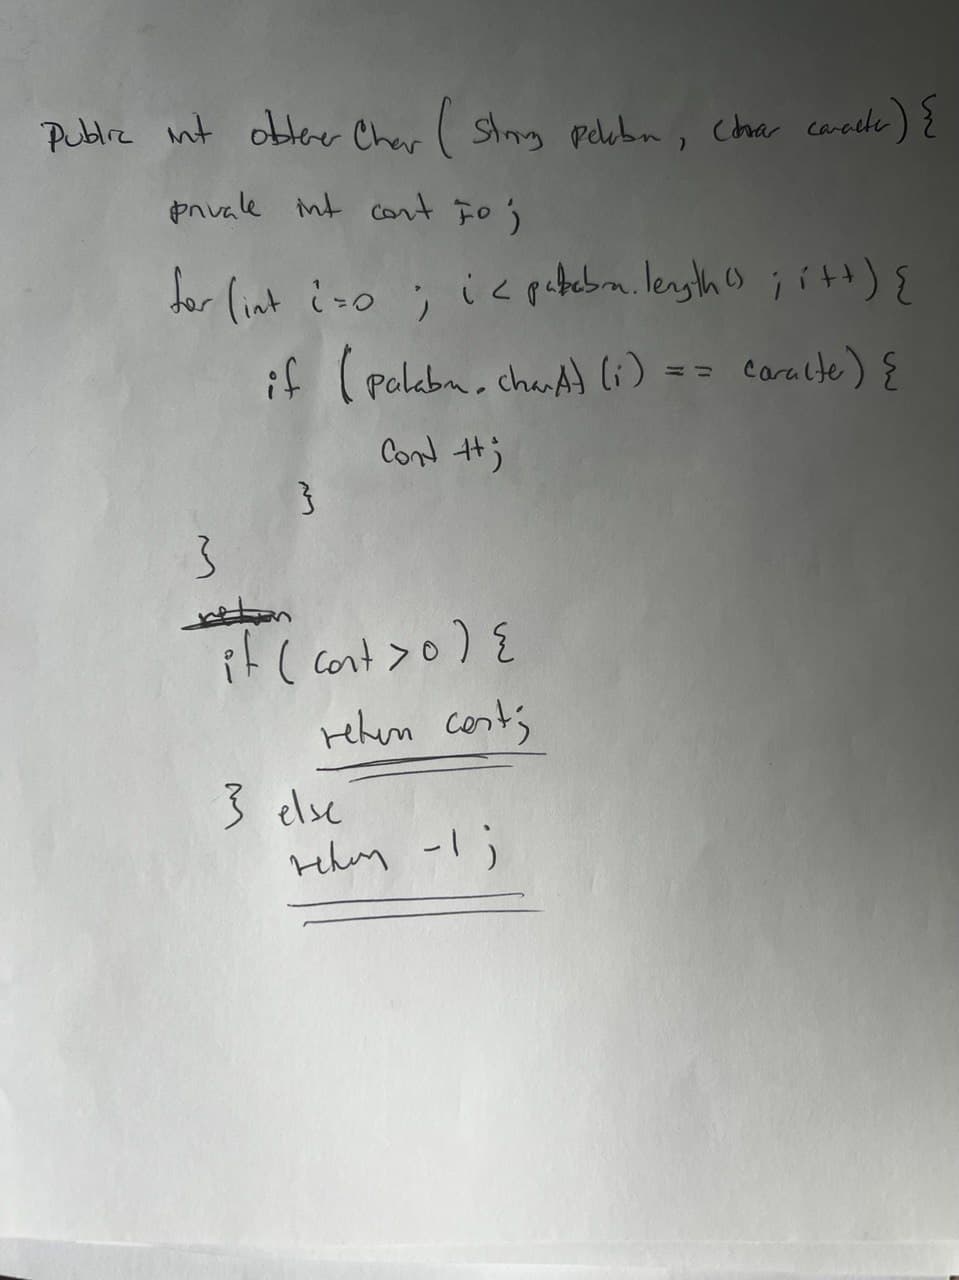 Public int obtenerChar ( String palabra , Char caracter) {
private int cont = 0 ;
for (int i = 0 ; i < palabra.length() ; i++) {
if ( palabra.charAt (i) == caracter) {
Cont ++;
}
}
return
if ( cont > 0 ) {
return cont;
} else
return -1 ;